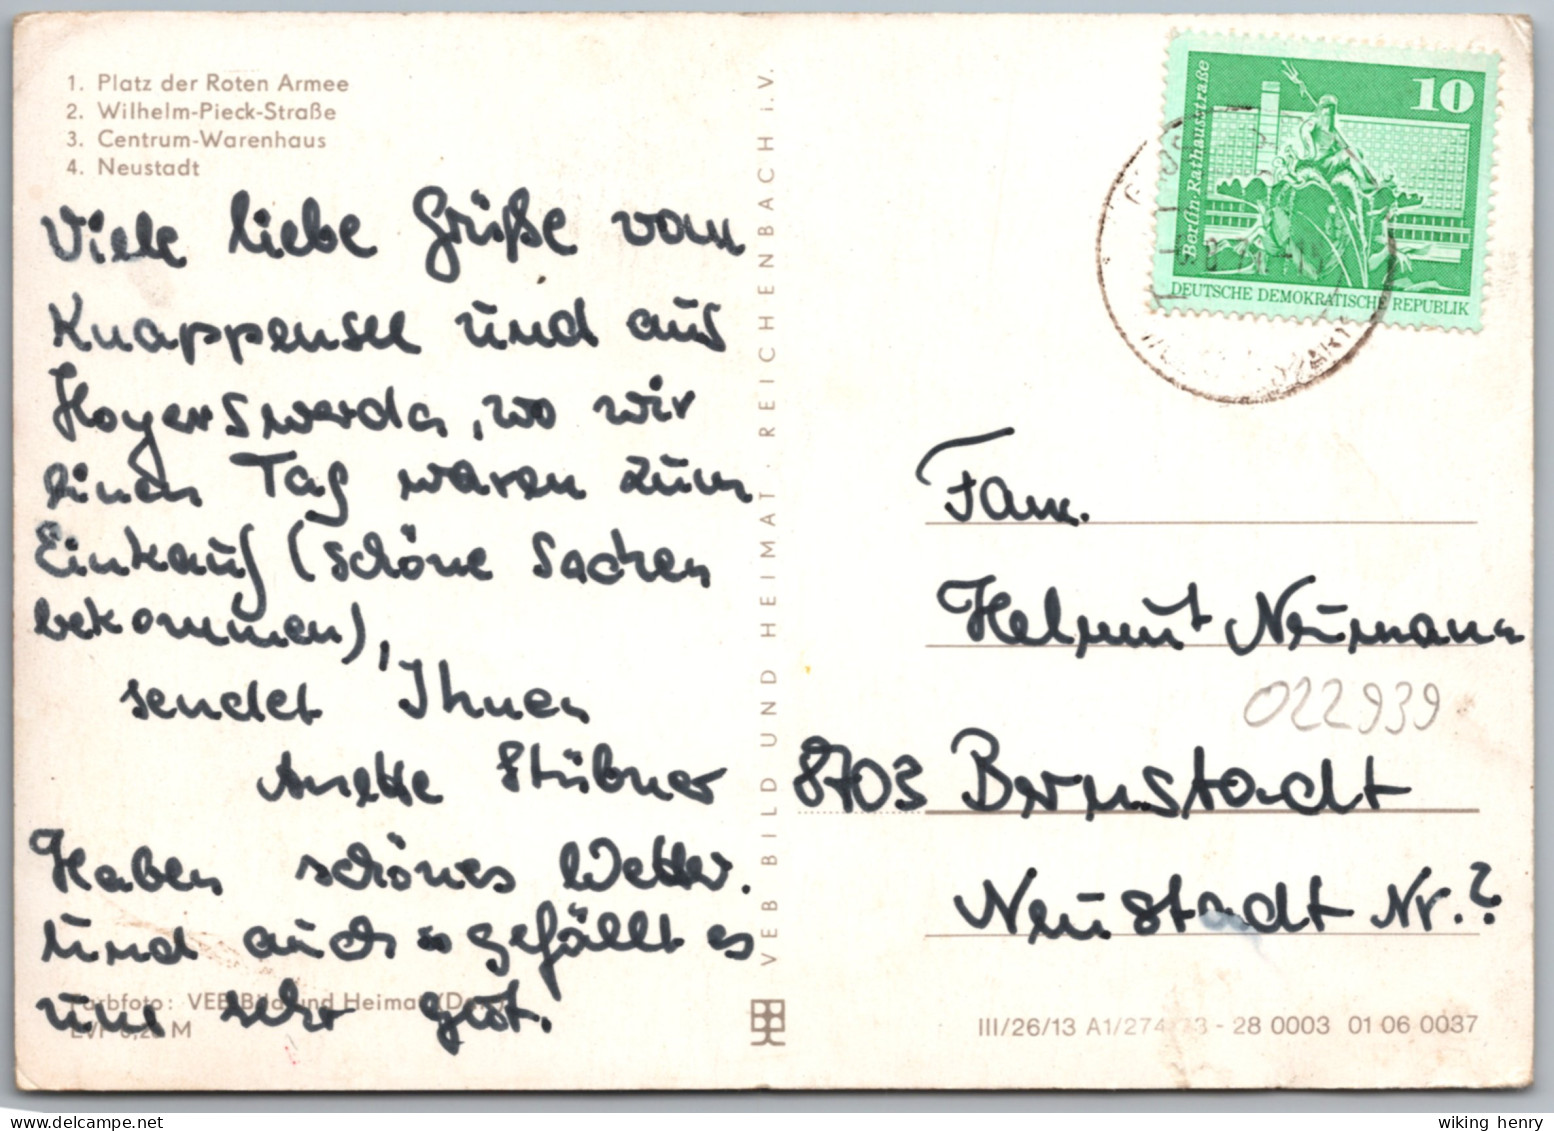 1. Platz der Roten Armee
2. Wilhelm-Pieck-Straße
3. Centrum-Warenhaus
4. Neustadt
Viele liebe Grüße vom
Knappensee und aus
Hoyerswerda, wo wir
einen Tag waren zum
Einkauf (schöne Sachen
bekommen),
sendet Ihnen
Anette Stübner
Haben schönes Wetter.
und auch gefällt es
uns sehr gut.
Farbfoto: VEB Bild und Heimat
EVP 0,20 M
VEB BILD UND HEIMAT · REICHENBACH i.V.
10
Berlin Rathausstraße
DEUTSCHE DEMOKRATISCHE REPUBLIK
Fam.
Helmut Neumann
022939
8703 Bernstadt
Neustadt Nr.?
III/26/13 A1/274 73 - 28 0003 01 06 0037
www.delcampe.net
wiking henry